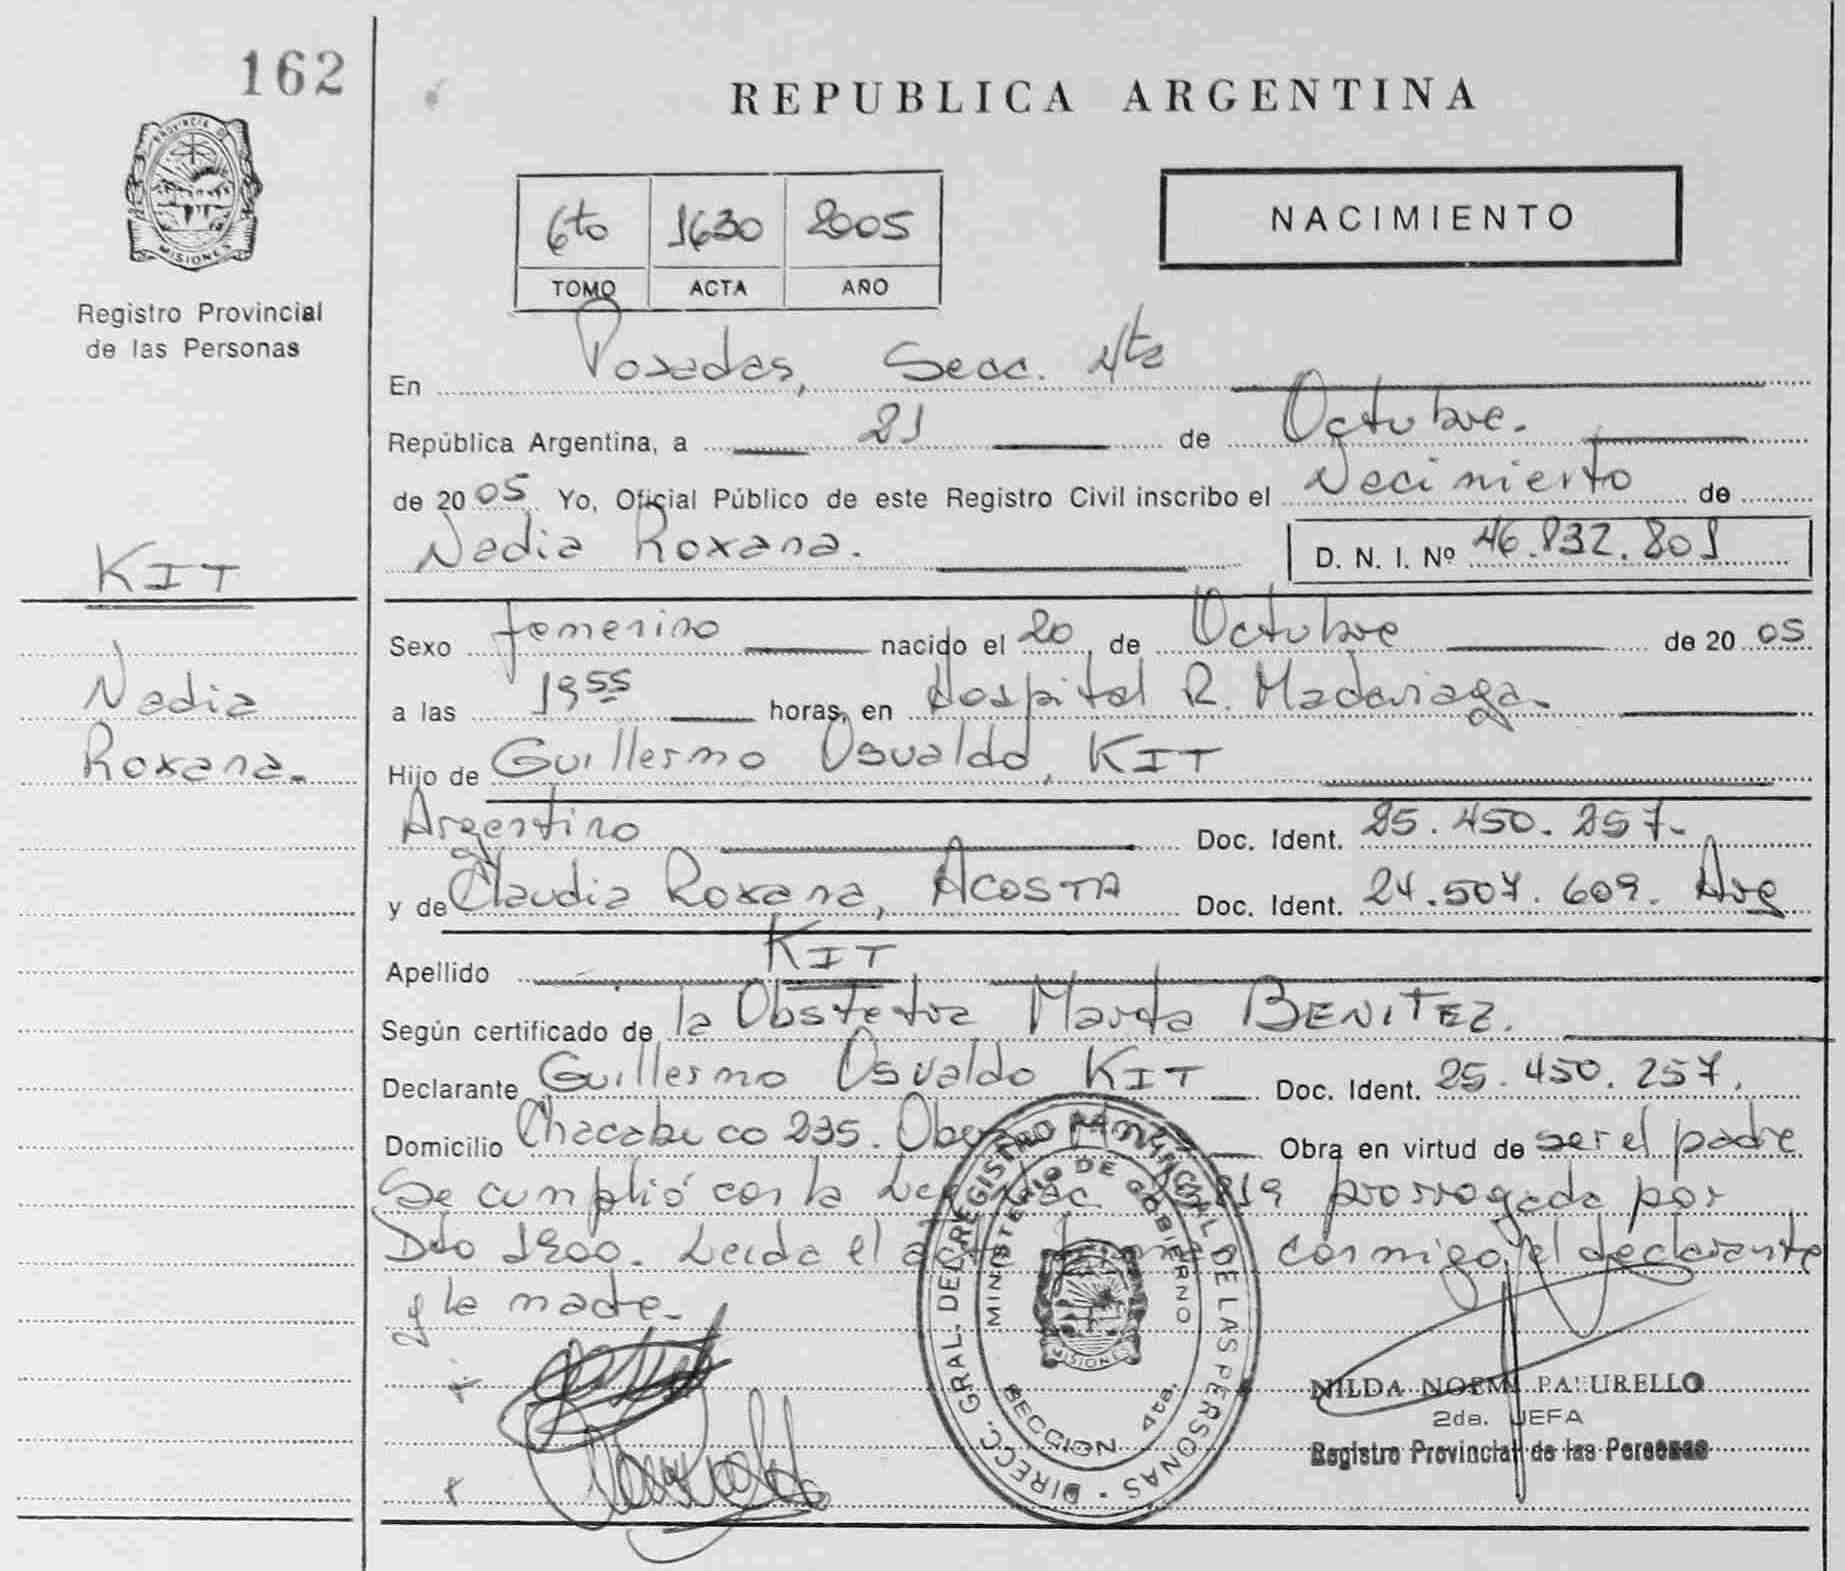 162
PROVINCIA D
MISIONES
Registro Provincial
de las Personas
KIT
Nadia
Roxana.
REPUBLICA ARGENTINA
6to 1630 2005
TOMO ACTA AÑO
NACIMIENTO
En Posadas, Secc. 4ta
República Argentina, a 21 de Octubre.
de 2005 Yo, Oficial Público de este Registro Civil inscribo el Nacimiento de
Nadia Roxana. D. N. I. Nº 46.832.801
Sexo femenino nacido el 20 de Octubre de 2005
a las 19 55 horas, en Hospital R. Madariaga.
Hijo de Guillermo Osvaldo, KIT
Argentino Doc. Ident. 25.450.257.
y de Claudia Roxana, ACOSTA Doc. Ident. 24.507.609. Arg
Apellido KIT
Según certificado de la Obstetra Marta BENITEZ.
Declarante Guillermo Osvaldo KIT Doc. Ident. 25.450.257.
Domicilio Chacabuco 235. Obera Obra en virtud de ser el padre
Se cumplió con la Ley 819 prorrogada por
Dto 1900. Leida el acta conmigo el declarante
y la madre.
DIRECC. GRAL. DEL REGISTRO PROVINCIAL DE LAS PERSONAS
MINISTERIO DE GOBIERNO
MISIONES
SECCION 4ta.
NILDA NOEMI
2da. JEFA
Registro Provincial de las Personas